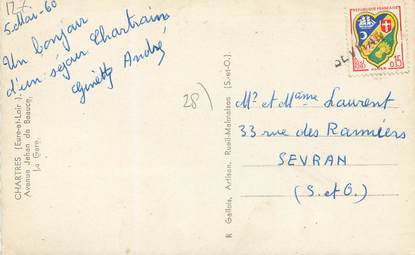 5 Mai - 60
Un bonjour
d'un séjour Chartrain
Ginette André
CHARTRES (Eure-et-Loir).
Avenue Jehan de Beauce,
La Gare.
R Gallois, Artisan, Rueil-Malmaison (S.-et-O.)
28)
REPUBLIQUE FRANCAISE
0,15
SEVRAN
Mr et Mame Laurent
33 rue des Ramiers
SEVRAN
(S. et O.)